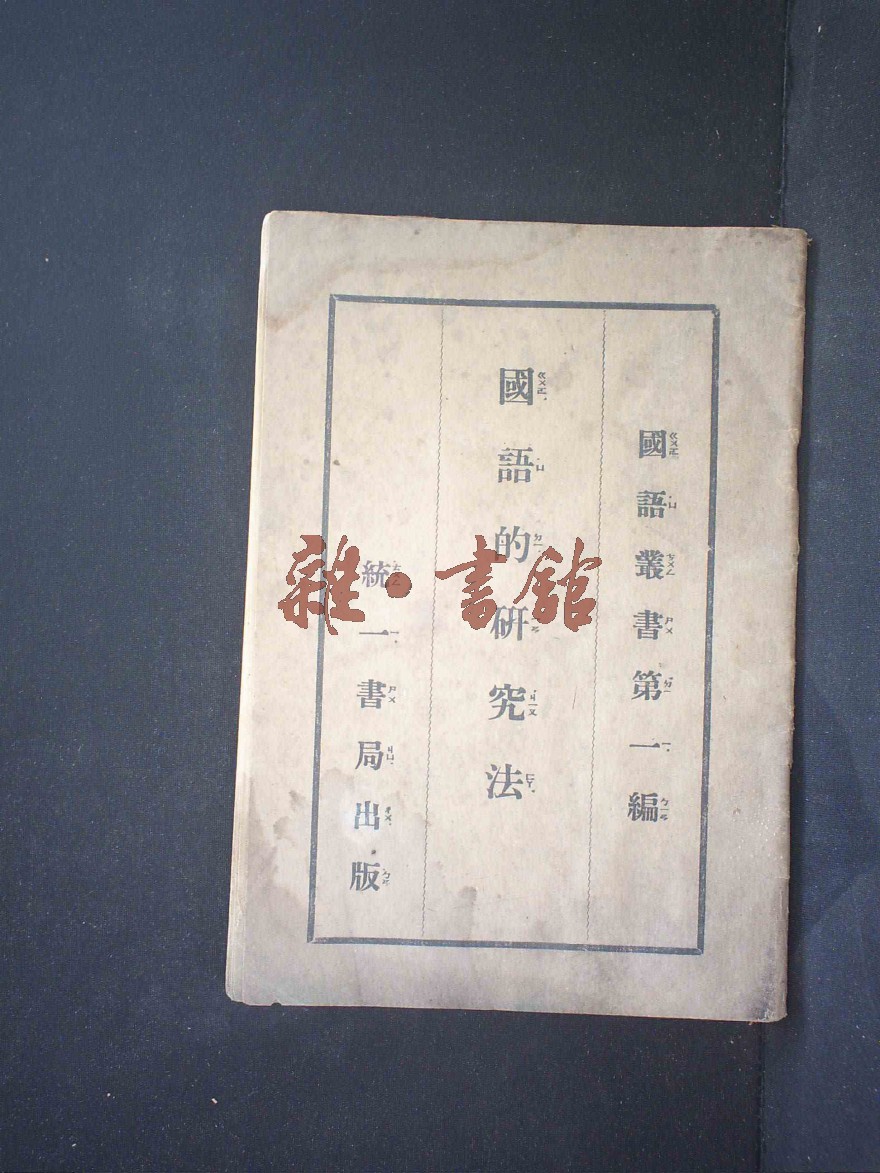 國語叢書第一編
國語的研究法
統一書局出版
雜·書館